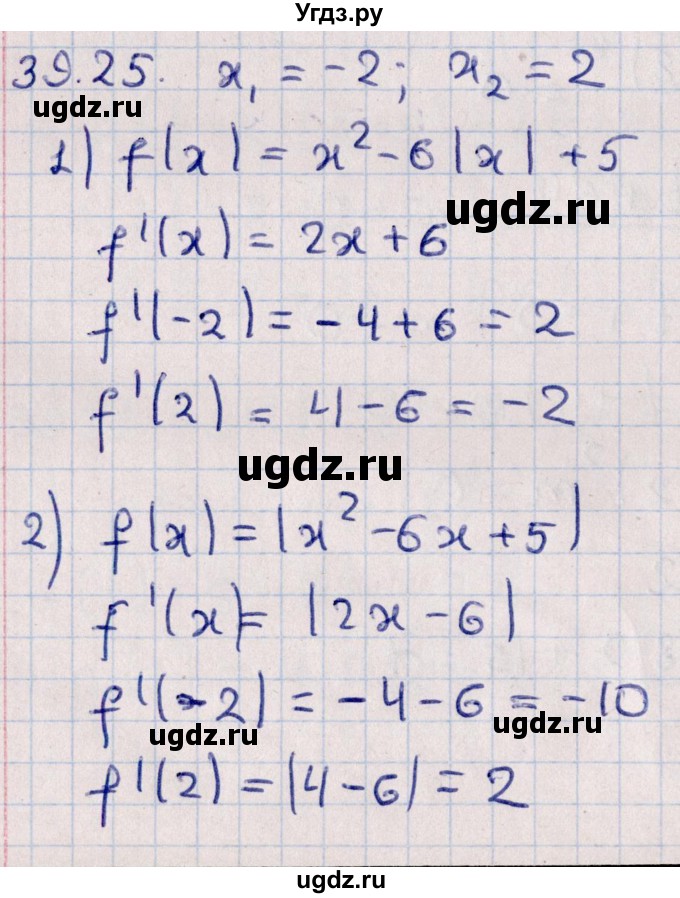 Угдз.ру
39.25. x₁ = -2; x₂ = 2
ugdz.ru
1) f(x) = x² - 6|x| + 5
ugdz.ru
f'(x) = 2x + 6
f'(-2) = -4 + 6 = 2
f'(2) = 4 - 6 = -2
ugdz.ru
2) f(x) = |x² - 6x + 5|
f'(x) = |2x - 6|
f'(-2) = -4 - 6 = -10
ugdz.ru
ugdz.ru
f'(2) = |4 - 6| = 2
ugdz.ru